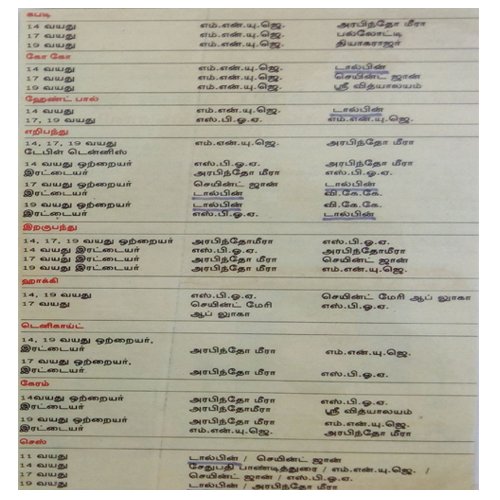 கபடி
14 வயது எம்.என்.யு.ஜெ. அரபிந்தோ மீரா
17 வயது எம்.என்.யு.ஜெ. பல்லோட்டி
19 வயது எம்.என்.யு.ஜெ. தியாகராஜர்
கோ கோ
14 வயது எம்.என்.யு.ஜெ. டால்பின்
17 வயது எம்.என்.யு.ஜெ. செயின்ட் ஜான்
19 வயது எம்.என்.யு.ஜெ. ஸ்ரீ வித்யாலயம்
ஹேண்ட் பால்
14 வயது எம்.என்.யு.ஜெ. டால்பின்
17, 19 வயது எஸ்.பி.ஓ.ஏ. எம்.என்.யு.ஜெ.
எறிபந்து
14, 17, 19 வயது எம்.என்.யு.ஜெ. அரபிந்தோ மீரா
டேபிள் டென்னிஸ்
14 வயது ஒற்றையர் எஸ்.பி.ஓ.ஏ. அரபிந்தோ மீரா
இரட்டையர் அரபிந்தோ மீரா எஸ்.பி.ஓ.ஏ.
17 வயது ஒற்றையர் செயின்ட் ஜான் டால்பின்
இரட்டையர் டால்பின் வி.கே.கே.
19 வயது ஒற்றையர் டால்பின் வி.கே.கே.
இரட்டையர் எஸ்.பி.ஓ.ஏ. டால்பின்
இறகுபந்து
14, 17, 19 வயது ஒற்றையர் அரபிந்தோமீரா எஸ்.பி.ஓ.ஏ.
14 வயது இரட்டையர் எஸ்.பி.ஓ.ஏ. அரபிந்தோமீரா
17 வயது இரட்டையர் அரபிந்தோ மீரா செயின்ட் ஜான்
19 வயது இரட்டையர் அரபிந்தோ மீரா எம்.என்.யு.ஜெ.
ஹாக்கி
14, 19 வயது எஸ்.பி.ஓ.ஏ. செயின்ட் மேரி ஆப் லூகா
17 வயது செயின்ட் மேரி எஸ்.பி.ஓ.ஏ.
ஆப் லூகா
டெனிகாய்ட்
14, 19 வயது ஒற்றையர்,
இரட்டையர் அரபிந்தோ மீரா எம்.என்.யு.ஜெ.
17 வயது ஒற்றையர்,
இரட்டையர் அரபிந்தோ மீரா எஸ்.பி.ஓ.ஏ.
கேரம்
14வயது ஒற்றையர் அரபிந்தோ மீரா எஸ்.பி.ஓ.ஏ.
இரட்டையர் அரபிந்தோ மீரா ஸ்ரீ வித்யாலயம்
19 வயது ஒற்றையர் அரபிந்தோ மீரா எம்.என்.யு.ஜெ.
இரட்டையர் எம்.என்.யு.ஜெ. அரபிந்தோ மீரா
செஸ்
11 வயது டால்பின் / செயின்ட் ஜான்
14 வயது சேதுபதி பாண்டித்துரை / எம்.என்.யு.ஜெ. /
17 வயது செயின்ட் ஜான் / எஸ்.பி.ஓ.ஏ.
19 வயது டால்பின் / அரபிந்தோ மீரா